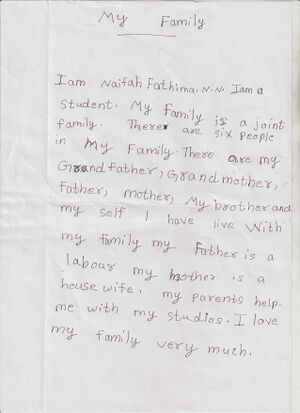 My Family
I am Naifah Fathima. N.N. I am a
student. My Family is a joint
family. Therer are six people
in My Family. There are my
Grandfather, Grandmother,
Father, mother, My brother and
my self I have live with
my family my Father is a
labour my mother is a
house wife. my parents help
me with my studies. I love
my family very much.